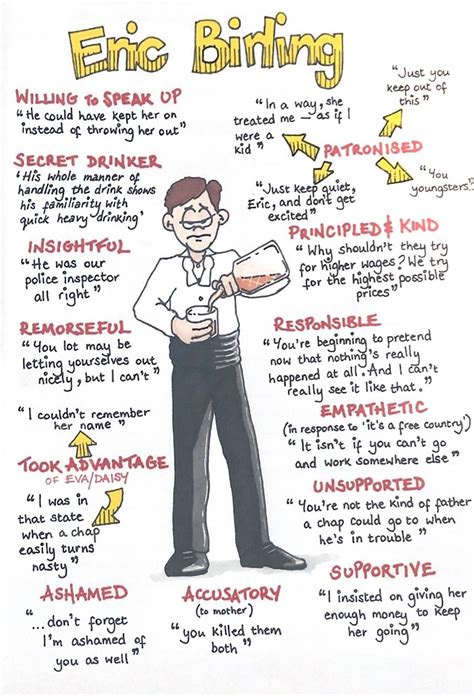 Eric Birling
WILLING TO SPEAK UP
"He could have kept her on
instead of throwing her out"
SECRET DRINKER
'His whole manner of
handling the drink shows
his familiarity with
quick heavy drinking'
INSIGHTFUL
"He was our
police inspector
all right"
REMORSEFUL
"You lot may be
letting yourselves out
nicely, but I can't"
"I couldn't remember
her name"
TOOK ADVANTAGE
OF EVA/DAISY
"I was in
that state
when a chap
easily turns
nasty"
ASHAMED
"...don't forget
I'm ashamed of
you as well"
ACCUSATORY
(to mother)
"you killed them
both"
"In a way, she
treated me – as if I
were a
kid"
"Just you
keep out of
this"
PATRONISED
"Just keep quiet,
Eric, and don't get
excited"
"You
youngsters."
PRINCIPLED & KIND
"Why shouldn't they try
for higher wages? We try
for the highest possible
prices"
RESPONSIBLE
"You're beginning to pretend
now that nothing's really
happened at all. And I can't
really see it like that."
EMPATHETIC
(in response to 'it's a free country')
"It isn't if you can't go
and work somewhere else"
UNSUPPORTED
"You're not the kind of father
a chap could go to when
he's in trouble"
SUPPORTIVE
"I insisted on giving her
enough money to keep
her going"